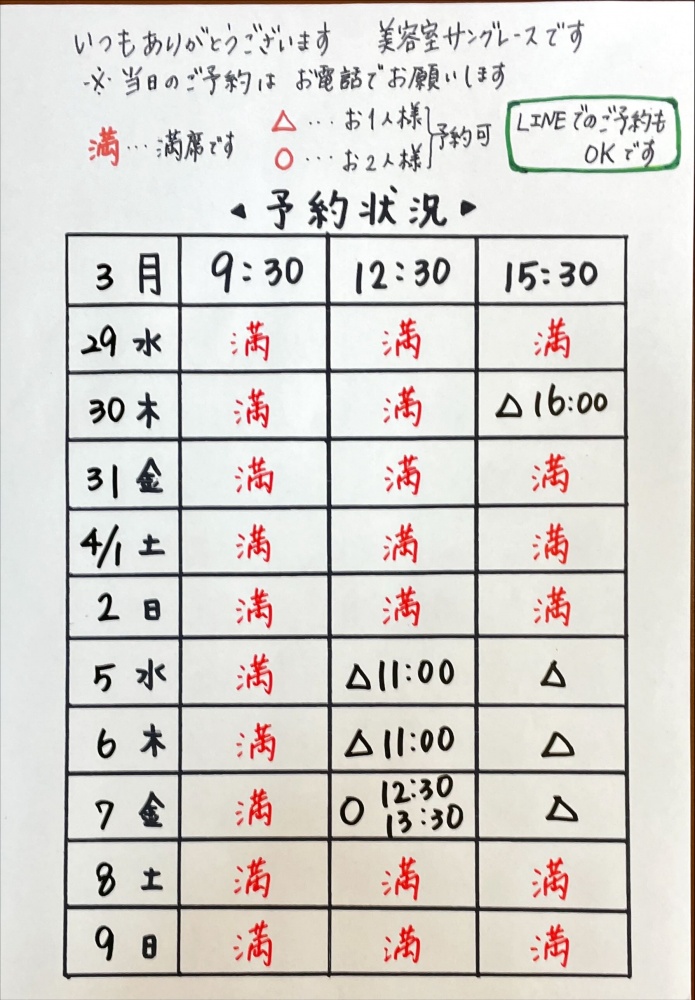 いつもありがとうございます 美容室サングレースです
※当日のご予約は お電話でお願いします
満…満席です
△…お1人様
○…お2人様
予約可
LINEでのご予約も
OKです
◀予約状況▶
3月 9:30 12:30 15:30
29 水 満 満 満
30 木 満 満 △16:00
31 金 満 満 満
4/1 土 満 満 満
2 日 満 満 満
5 水 満 △11:00 △
6 木 満 △11:00 △
7 金 満 ○ 12:30 13:30 △
8 土 満 満 満
9 日 満 満 満